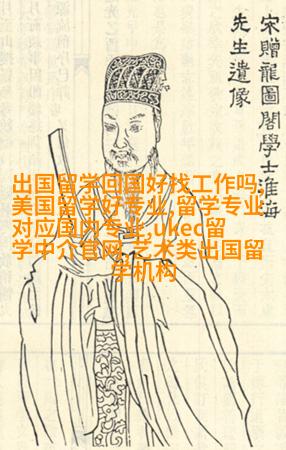 宋贈龍圖閣學士淮海
先生遺像
出国留学回国好找工作吗,
美国留学好专业,留学专业
对应国内专业,ukec留
学中介官网,艺术类出国留
学机构